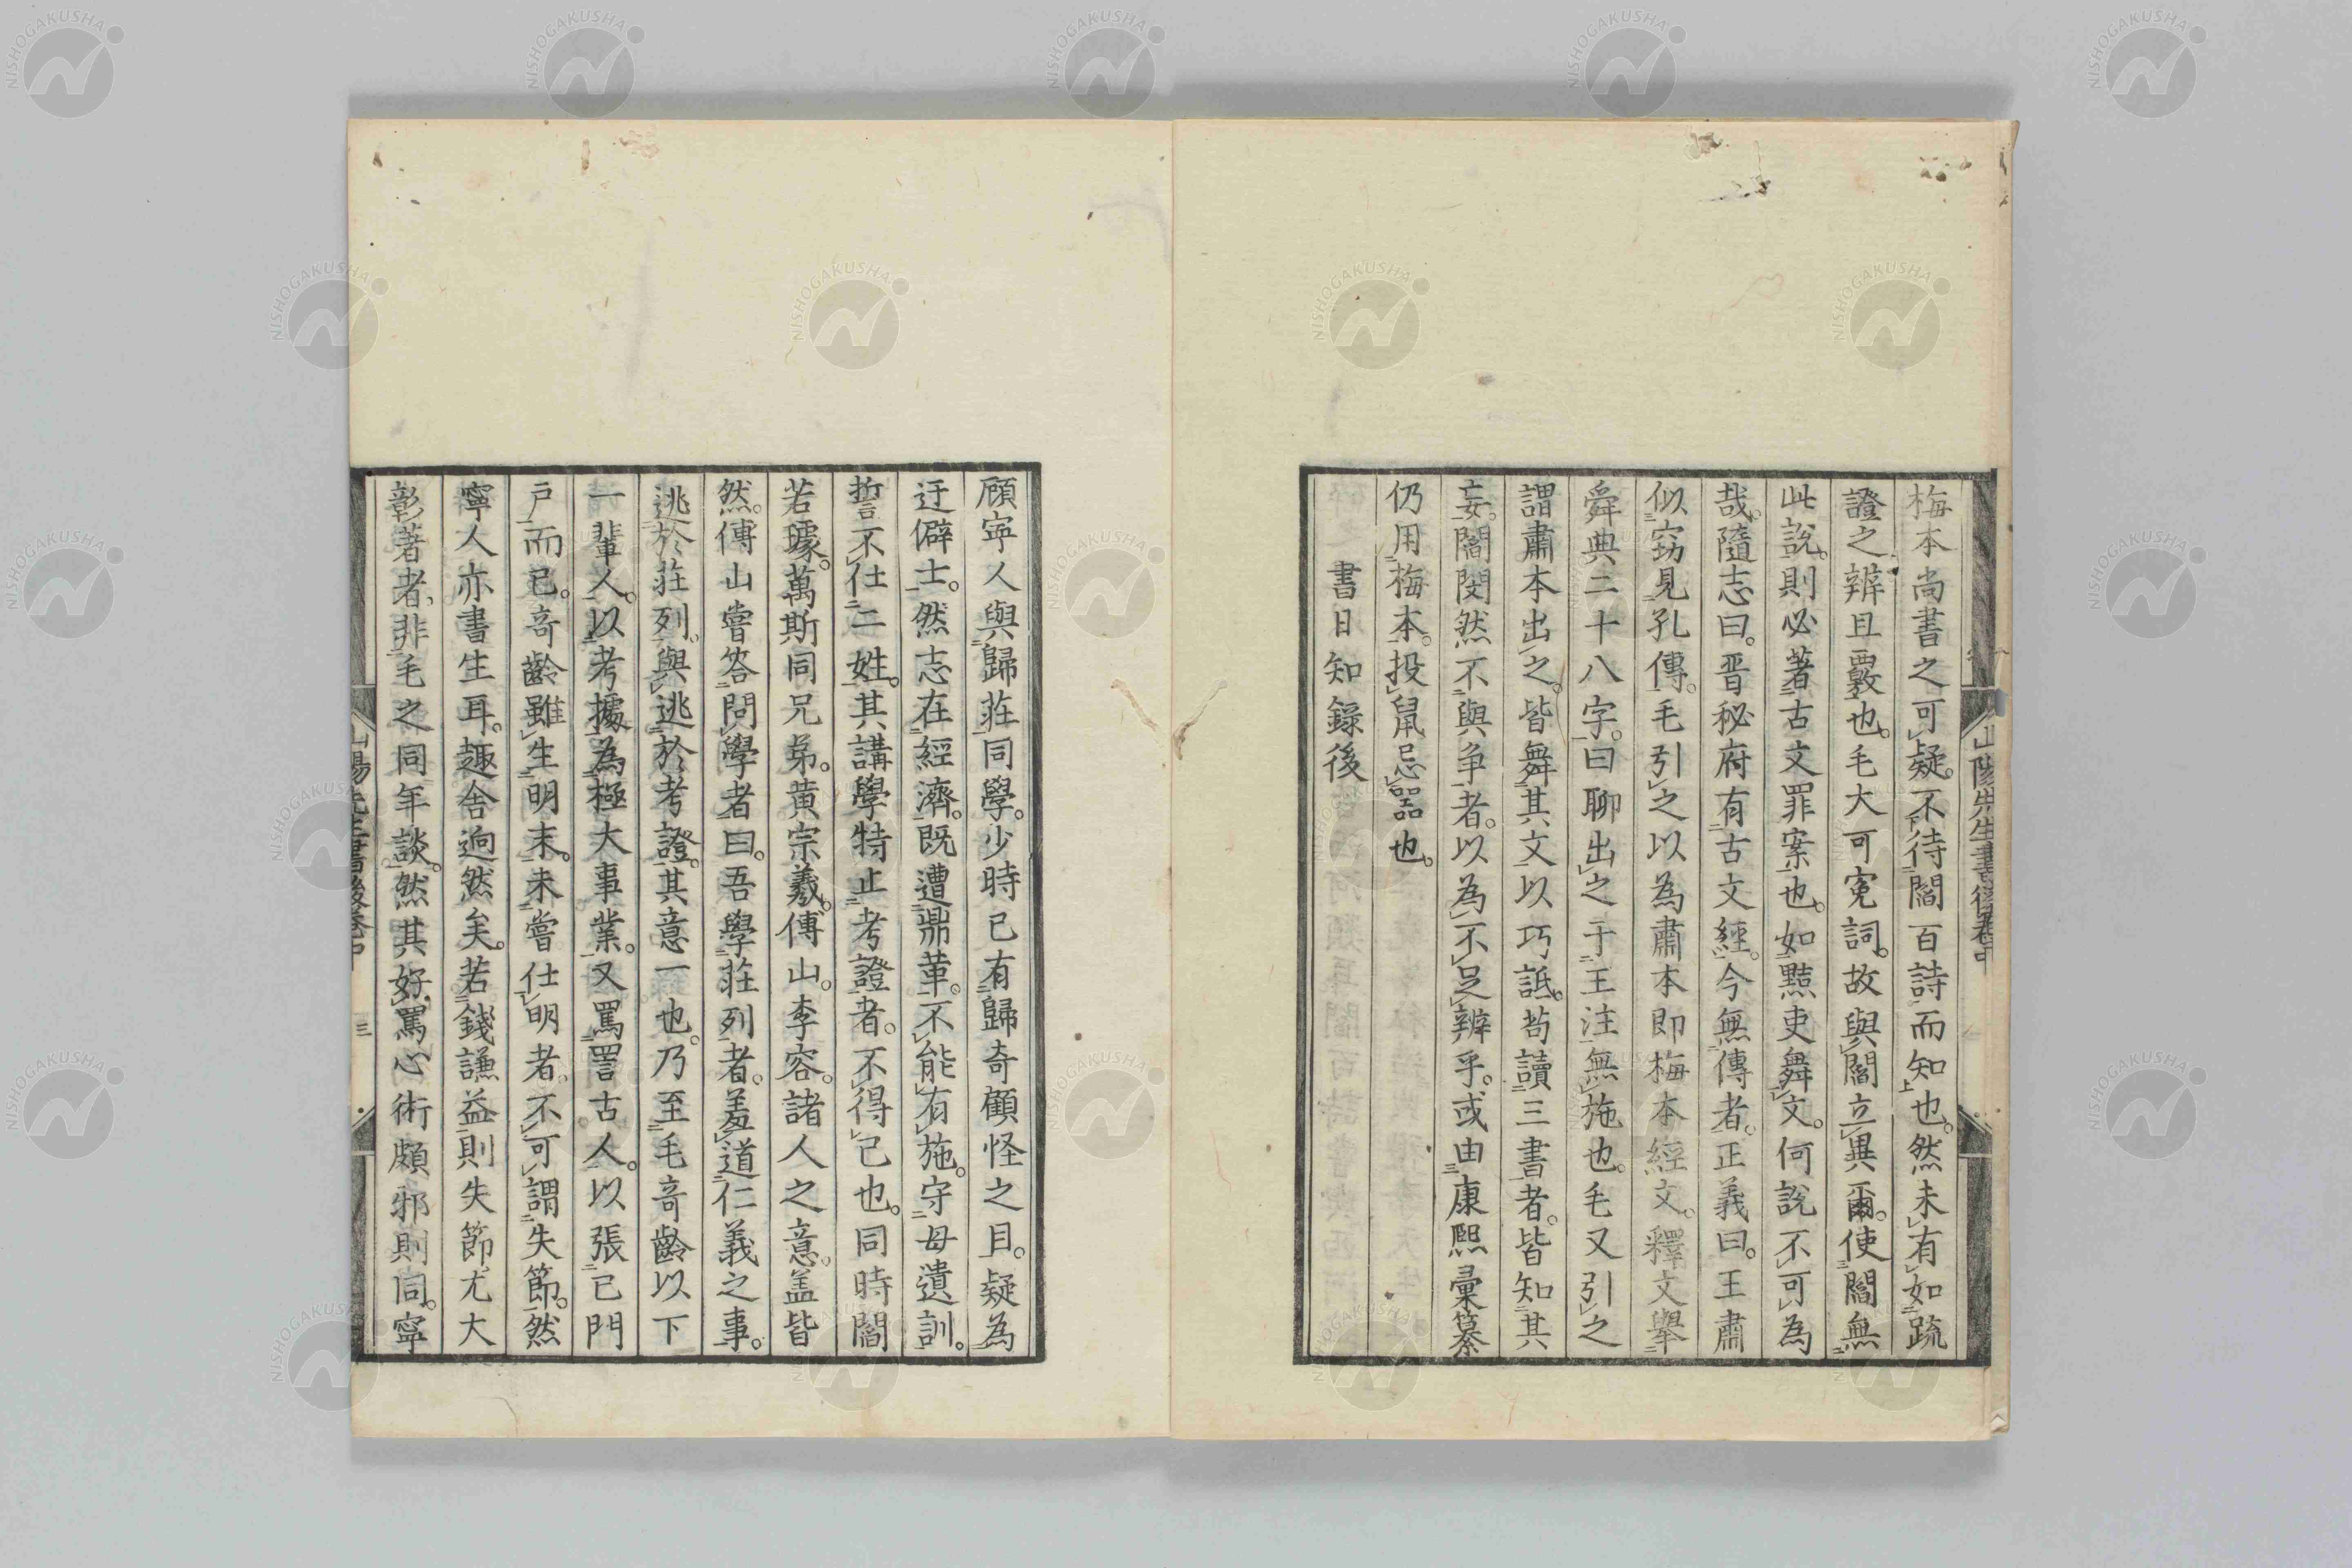 梅本尚書之可疑。不待閻百詩而知也。然未有如疏
證之辨且覈也。毛大可寃詞。故與閻立異爾。使閻無
此說。則必著古文罪案也。如黠吏舞文。何說不可為
哉。隨志曰。晋秘府有古文經。今無傳者。正義曰。王肅
似窃見孔傳。毛引之以為肅本即梅本經文。釋文舉
舜典二十八字。曰聊出之于王注無施也。毛又引之
謂肅本出之。皆舞其文以巧詆。苟讀三書者。皆知其
妄。閻閔然不與争者。以為不足辨乎。或由康熙彙纂
仍用梅本。投鼠忌器也。
書日知錄後
山陽先生書後卷中
顧寧人與歸莊同學。少時已有歸奇顧怪之目。疑為
迂僻士。然志在經濟。既遭鼎革。不能有施。守母遺訓。
誓不仕二姓。其講學特止考證者。不得已也。同時閻
若璩。萬斯同兄弟。黃宗羲。傅山。李容。諸人之意。盖皆
然。傅山嘗答問學者曰。吾學莊列者。羞道仁義之事。
逃於莊列。與逃於考證。其意一也。乃至毛奇齡以下
一輩人。以考據為極大事業。又罵詈古人。以張已門
戸而已。奇齡雖生明末。未嘗仕明者。不可謂失節。然
寧人亦書生耳。趣舍逈然矣。若錢謙益則失節尤大
彰著者。非毛之同年談。然其好罵心術頗邪則同。寧
山陽先生書後卷中
三
NISHOGAKUSHA